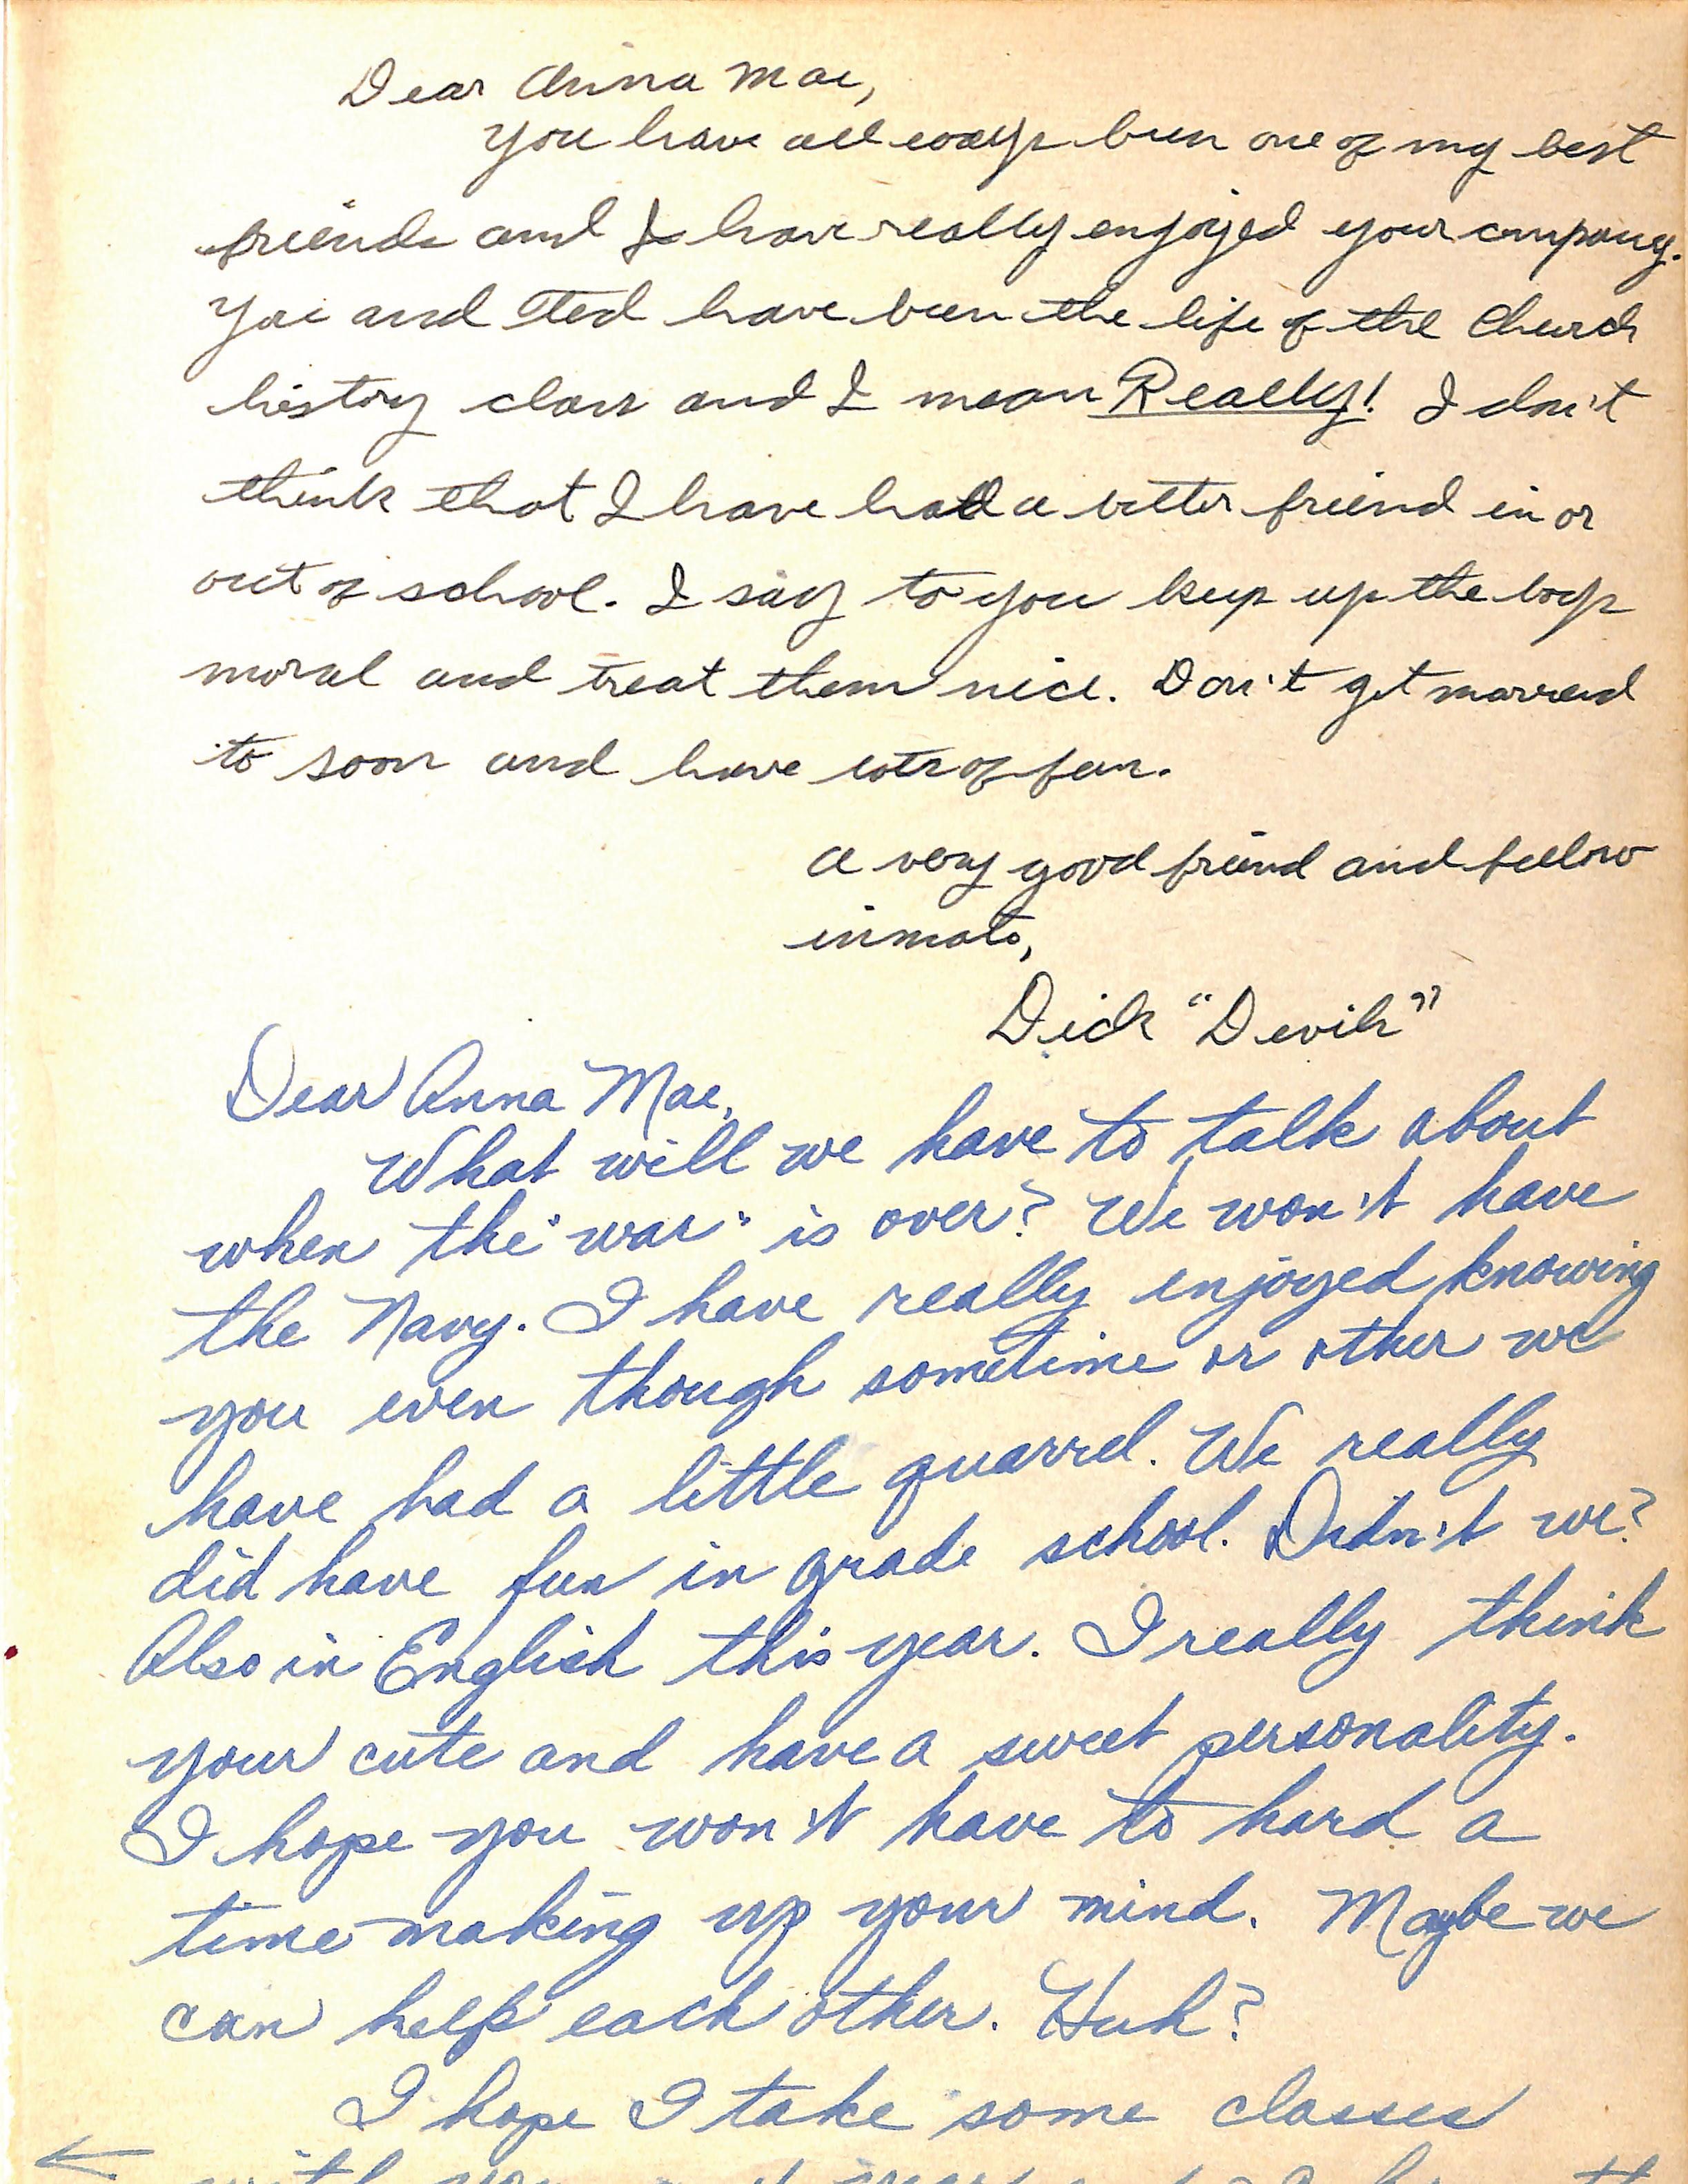 Dear Anna Mae,
you have all ways been one of my best
friends and I have really enjoyed your company.
You and Ted have been the life of the Church
history class and I mean Really! I don't
think that I have had a better friend in or
out of school. I say to you keep up the boys
moral and treat them nice. Don't get married
to soon and have lots of fun.
a very good friend and fellow
inmate,
Dick "Devils"
Dear Anna Mae,
What will we have to talk about
when the "war" is over? We won't have
the Navy. I have really enjoyed knowing
you even though sometime or other we
have had a little quarrel. We really
did have fun in grade school. Didn't we?
Also in English this year. I really think
your cute and have a sweet personality.
I hope you won't have to hard a
time making up your mind. Maybe we
can help each other. Huh?
I hope I take some classes
← with you